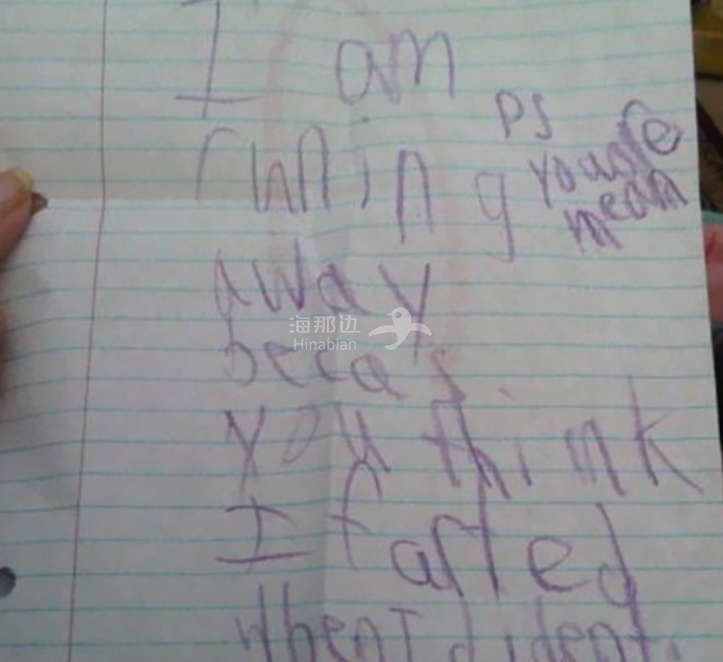 I am
runing
PS
you are
mean
away
海那边
Hinabian
becas
you think
I farted
when I dident.